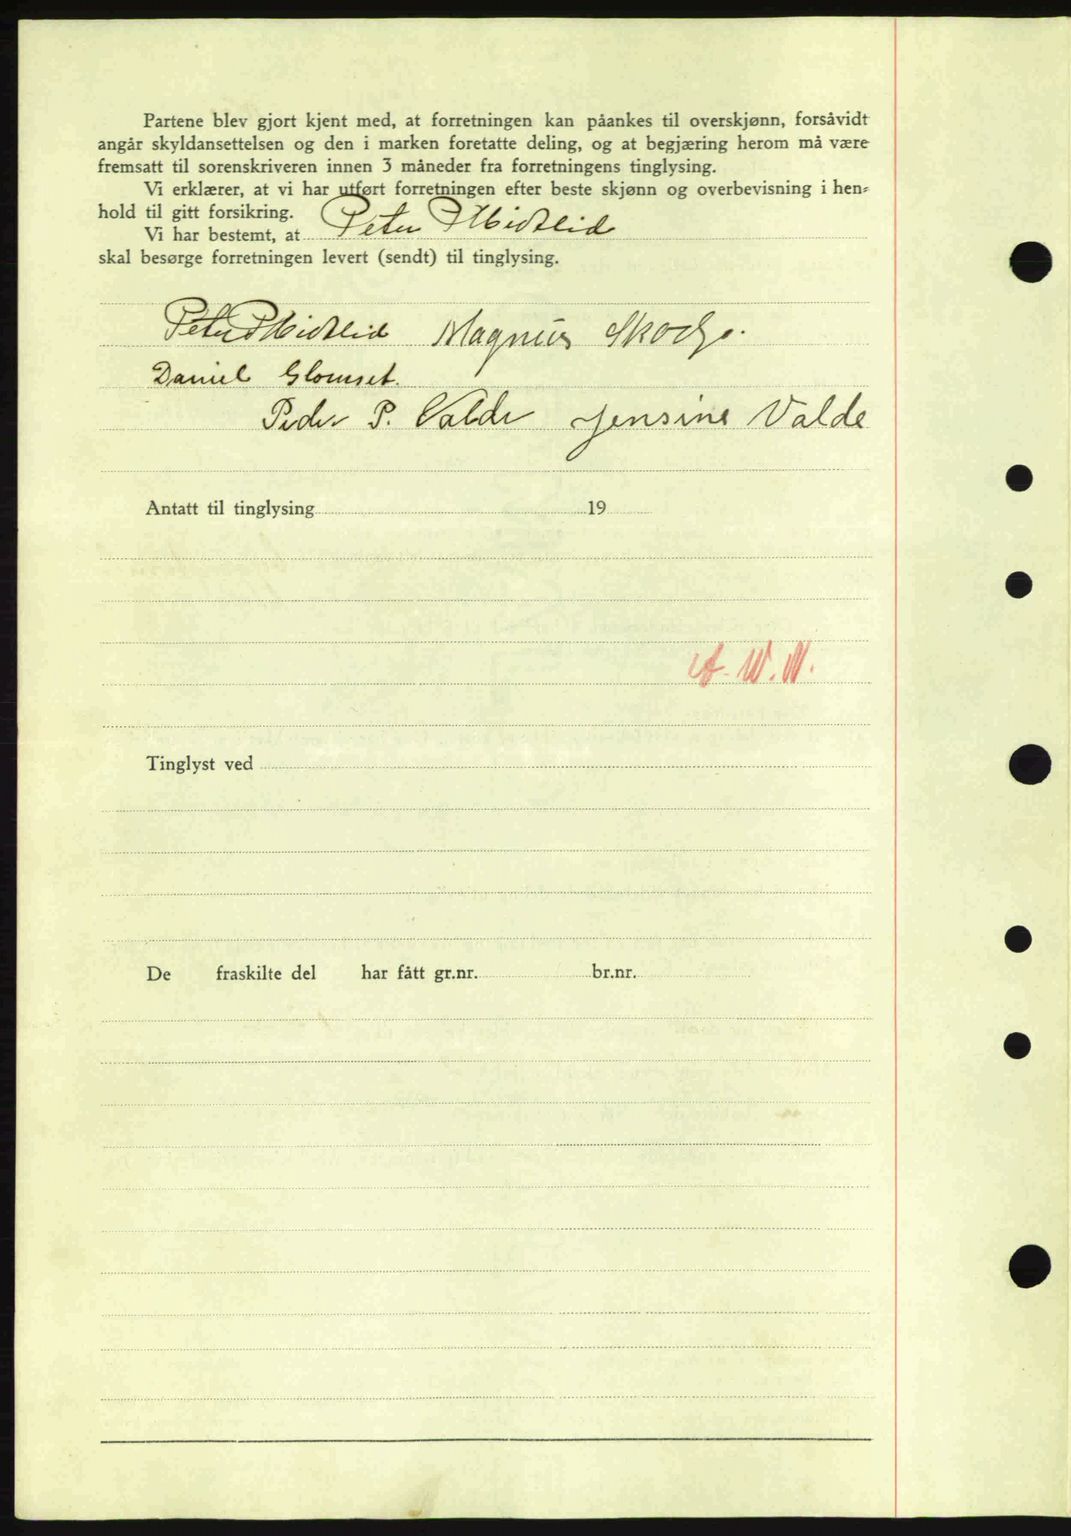 Partene blev gjort kjent med, at forretningen kan påankes til overskjønn, forsåvidt
angår skyldansettelsen og den i marken foretatte deling, og at begjæring herom må være
fremsatt til sorenskriveren innen 3 måneder fra forretningens tinglysing.
Vi erklærer, at vi har utført forretningen efter beste skjønn og overbevisning i hen-
hold til gitt forsikring.
Vi har bestemt, at Peter P Midtlid
skal besørge forretningen levert (sendt) til tinglysing.
Peter P Midtlid Magnus Skodje.
Daniel Glomset.
Peder P. Valde Jensine Valde
Antatt til tinglysing 19
A. W. N.
Tinglyst ved
De fraskilte del har fått gr.nr. br.nr.